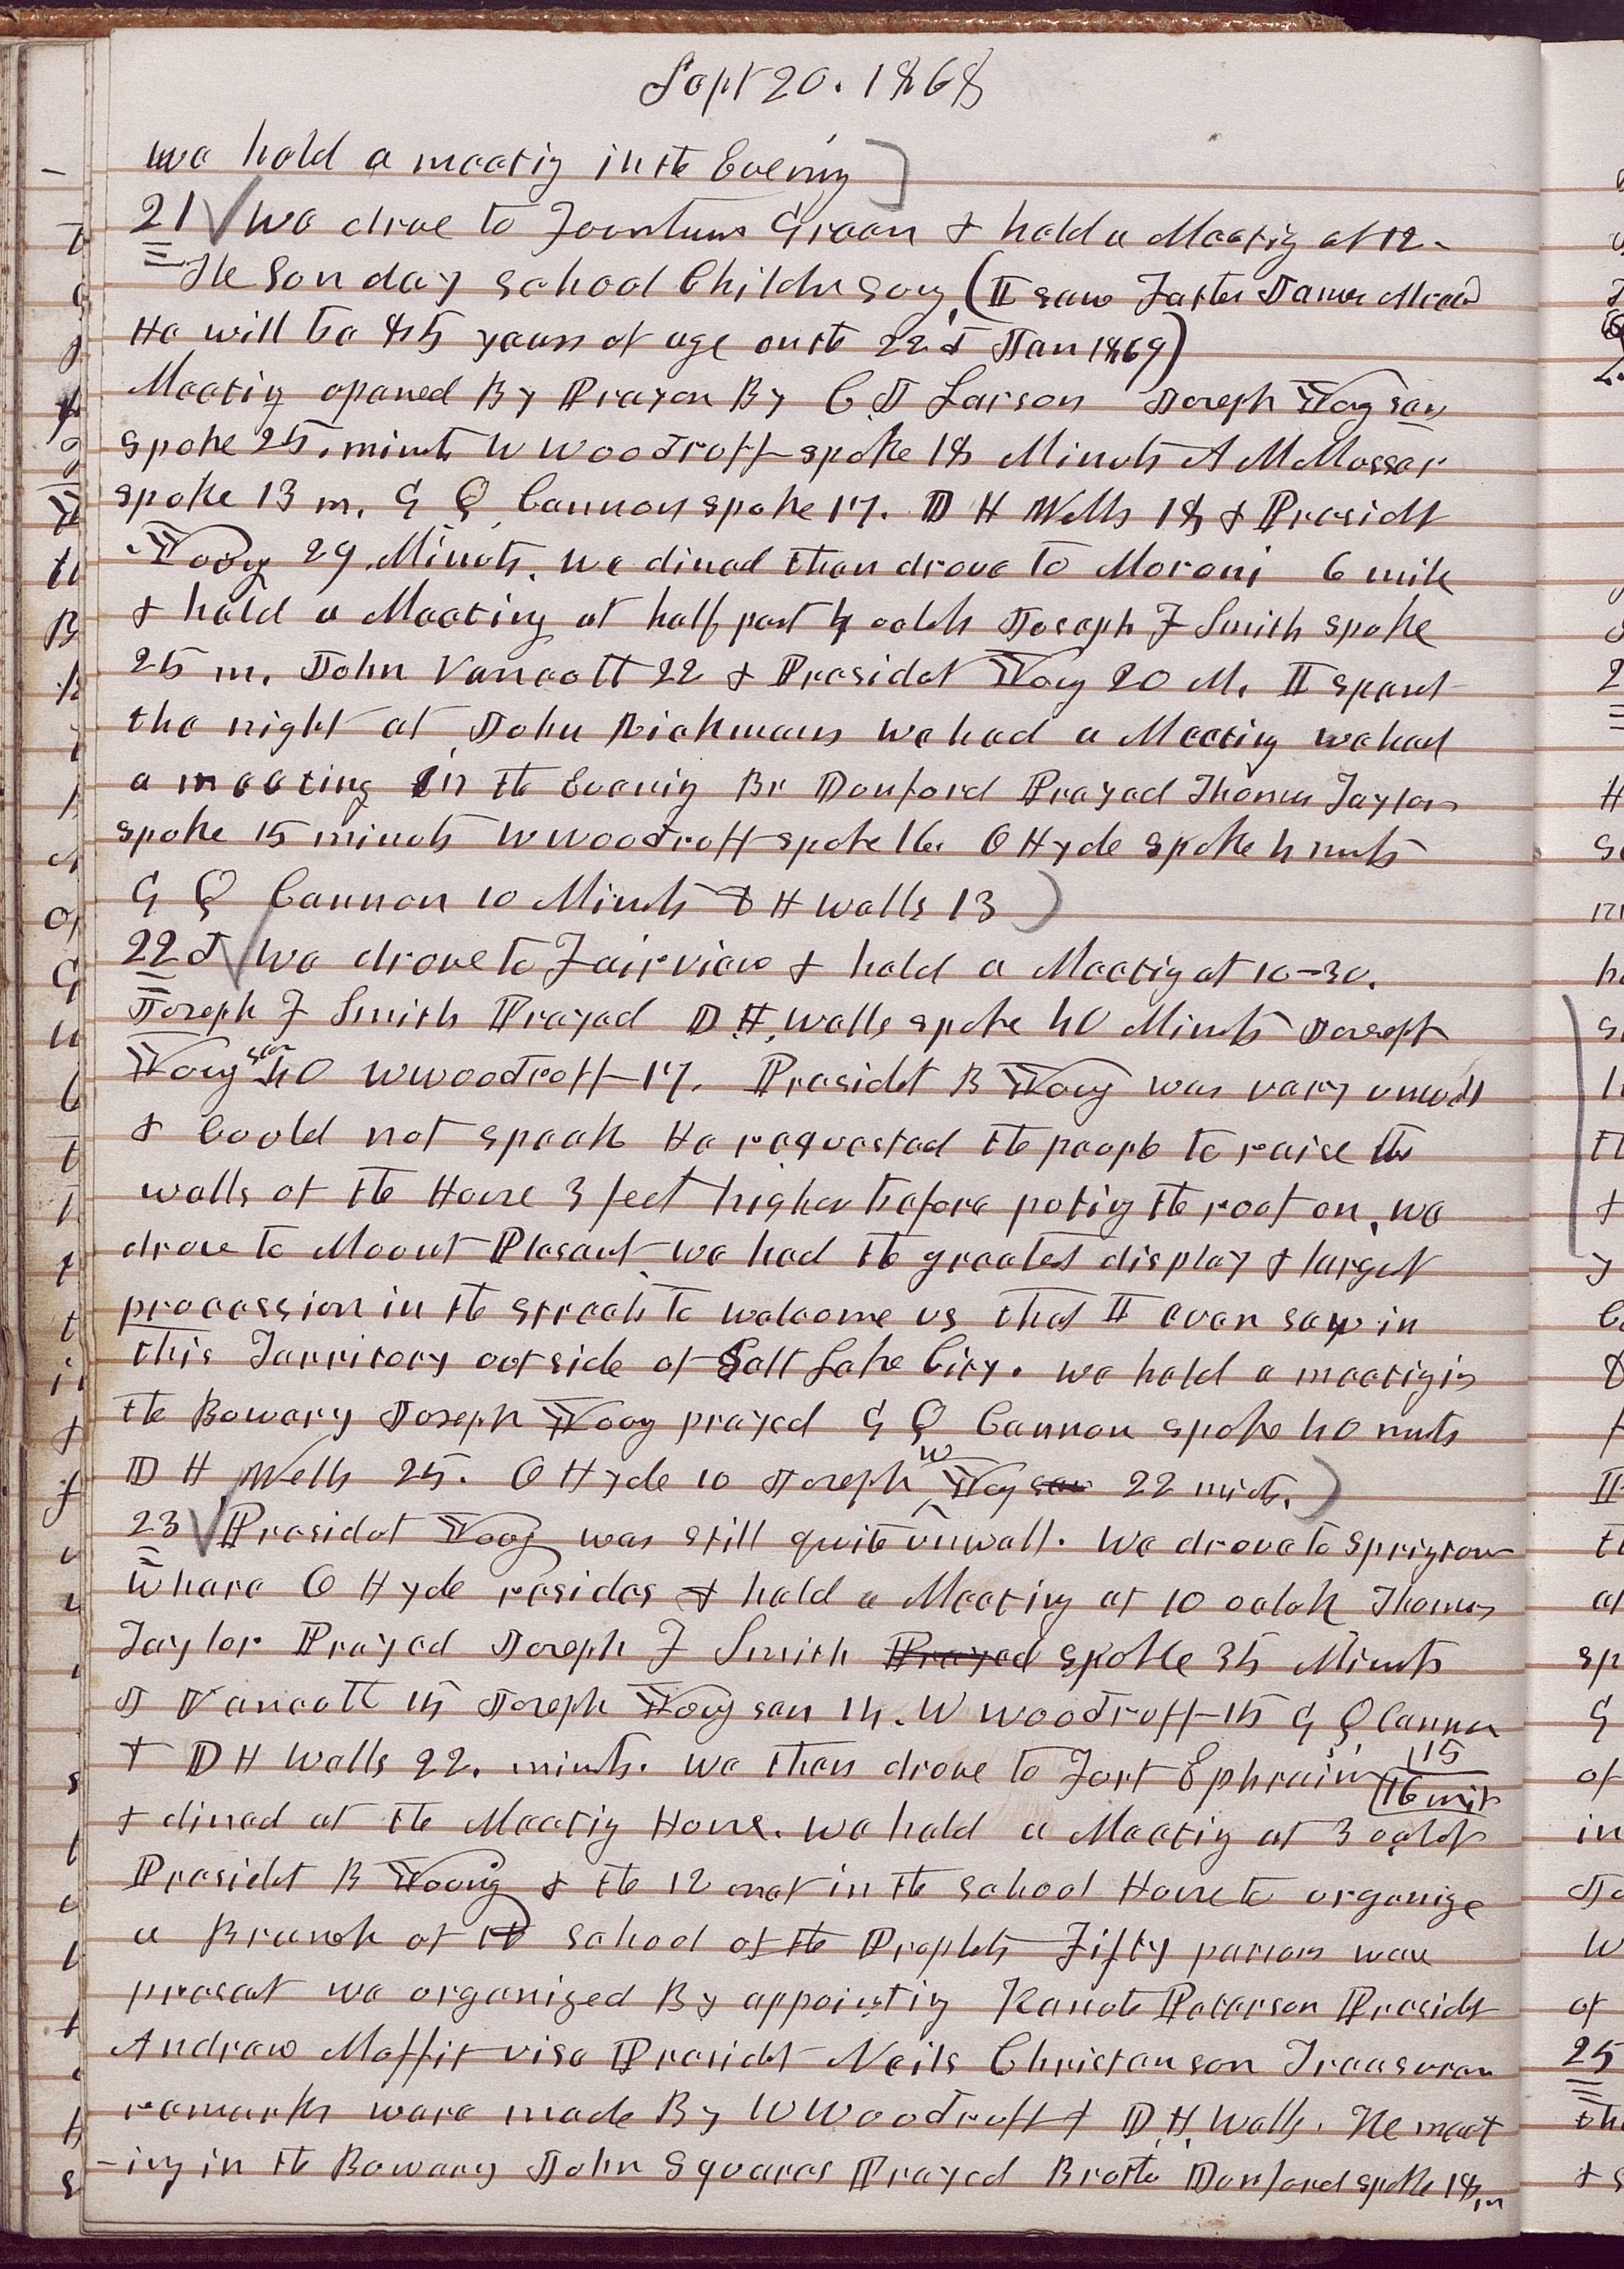 Sept 20. 1868
we held a meetig in the Evenig
21 we drove to Fountain Green & held a Meetig at 12.
The Sunday School Childrn sung (I saw Father James Mead
He will be 85 years of age on the 22d Jan 1869)
Meetig opened By Prayer By C J Larson Joseph Young sen
spoke 25. minuts W Woodruff spoke 18 Minuts A M Musser
spoke 13 m. G Q Cannon spoke 17. D H Wells 18 & Presidt
Young 29 Minuts. we dined then drove to Moroni 6 mile
& held a Meeting at half past 4 oclok Joseph F Smith spoke
25 m. John Vancott 22 & Presidet Young 20 M. I spent
the night at John Richmans we had a Meeting we had
a meeting in the Evenig Br Danford Prayed Thomas Taylor
spoke 15 minuts W Woodruff spoke 16. O Hyde spoke 4 nuts
G Q Cannon 10 Minuts D H Wells 13
22d we drove to Fairview & held a Meetig at 10-30.
Joseph F Smith Prayed D. H. Wells spoke 40 Minuts Joseph
Young sen 40 W Woodruff 17. Presidet B Young was vary unwell
& Could not speak He requested the people to raise the
walls of the House 3 feet higher before putig the roof on, we
drove to Mount Plesant we had the greatest display & largest
procession in the streets to welcome us that I ever saw in
this Territory outside of Salt Lake City. we held a meetig in
the Bowery Joseph Young prayed G Q Cannon spoke 40 nuts
D H Wells 25. O Hyde 10 Joseph W Young sen 22 mints.
23 Presidet Young was still quite unwell. We drove to Springtown
whare O Hyde resides & held a Meeting at 10 oclok Thomas
Taylor Prayed Joseph F Smith Prayed spoke 35 Minuts
J Vancott 15 Joseph Young sen 14. W Woodruff 15 G Q Cannon 15
& D H Wells 22. minuts. we then drove to Fort Ephraim 16 mil
& dined at the Meetig House. we held a Meetig at 3 oclok
Presidet B Young & the 12 met in the School House to organize
a Branch of the School of the Prophets Fifty persons ware
present we organized By appointig Kanute Peterson Presidt
Andrew Moffit vise Presidet Neils Christanson Treasurer
remarks ware made By W Woodruff & D. H. Wells. The meet
-ing in the Bowery John Squares Prayed Brother Danford spoke 18 m